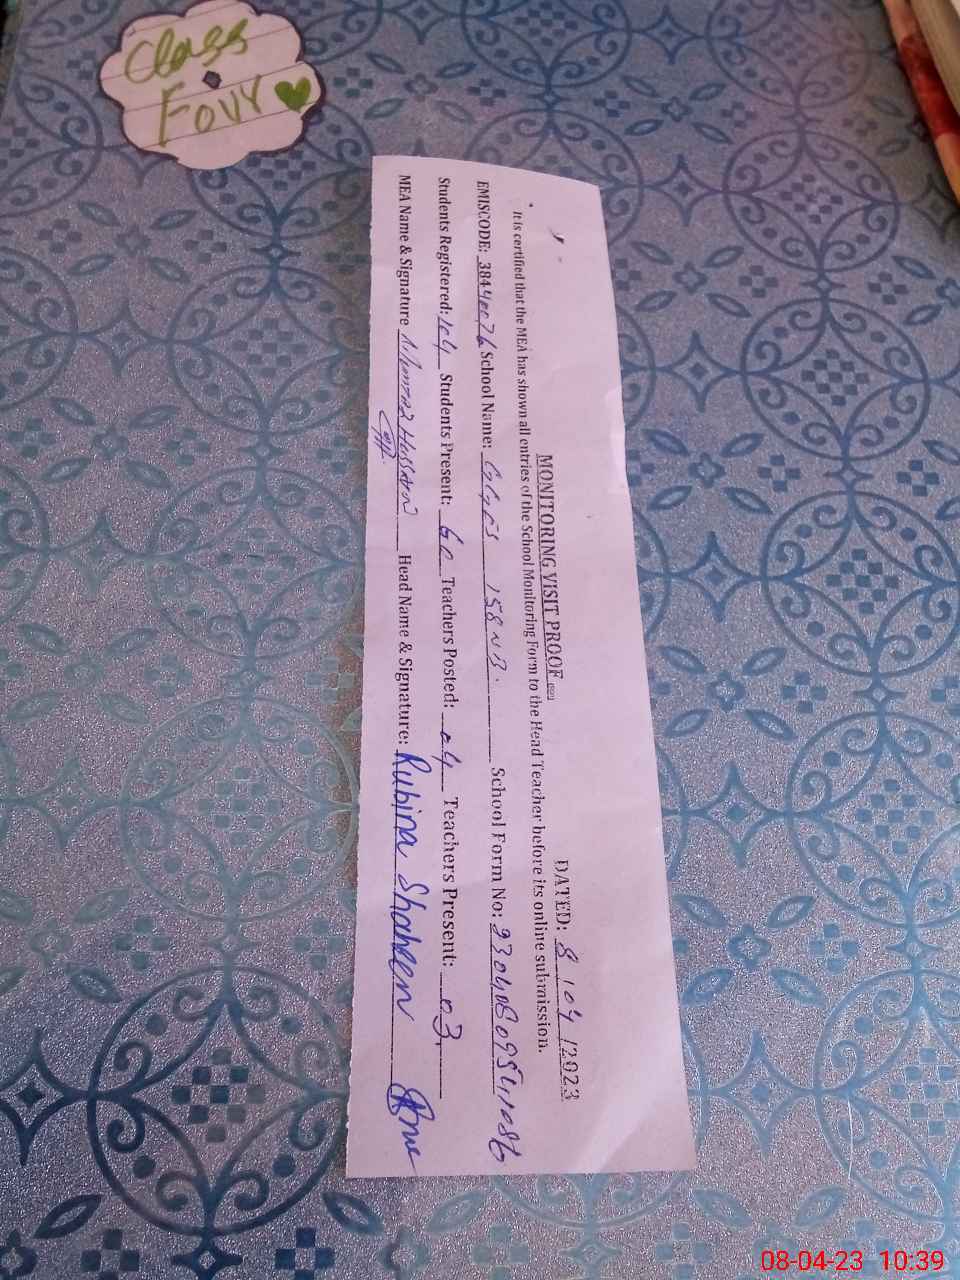 Class
Four
MONITORING VISIT PROOF
DATED: 8 / 04 / 2023
It is certified that the MEA has shown all entries of the School Monitoring Form to the Head Teacher before its online submission.
EMISCODE: 38440076 School Name: GGPS 158 NB. School Form No:
Students Registered: 104 Students Present: 60 Teachers Posted: 04 Teachers Present: 03
MEA Name & Signature Hussain Head Name & Signature: Rubina Shaheen
08-04-23 10:39